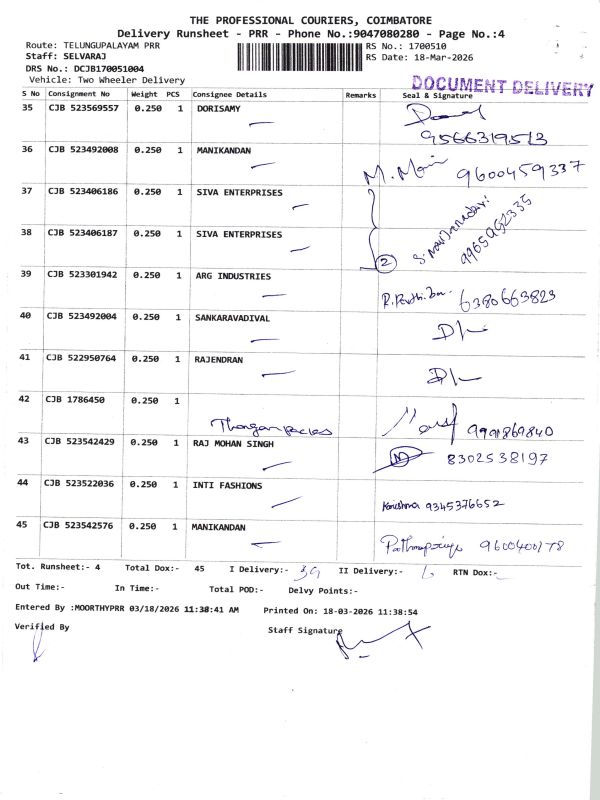 THE PROFESSIONAL COURIERS, COIMBATORE
Delivery Runsheet - PRR - Phone No.:9047080280 - Page No.:4
Route: TELUNGUPALAYAM PRR
RS No.: 1700510
Staff: SELVARAJ
RS Date: 18-Mar-2026
DRS No.: DCJB170051004
Vehicle: Two Wheeler Delivery
DOCUMENT DELIVERY
S No Consignment No Weight PCS Consignee Details Remarks Seal & Signature
35 CJB 523569557 0.250 1 DORISAMY
9566319513
36 CJB 523492008 0.250 1 MANIKANDAN
M. Mani 9600459337
37 CJB 523406186 0.250 1 SIVA ENTERPRISES
38 CJB 523406187 0.250 1 SIVA ENTERPRISES
2
9965952335
39 CJB 523301942 0.250 1 ARG INDUSTRIES
6380663823
40 CJB 523492004 0.250 1 SANKARAVADIVAL
D/-
41 CJB 522950764 0.250 1 RAJENDRAN
D/-
42 CJB 1786450 0.250 1
43 CJB 523542429 0.250 1 RAJ MOHAN SINGH
8302538197
44 CJB 523522036 0.250 1 INTI FASHIONS
Karishma 9345376652
45 CJB 523542576 0.250 1 MANIKANDAN
9600400178
Tot. Runsheet:- 4 Total Dox:- 45 I Delivery:- 39 II Delivery:- 6 RTN Dox:-
Out Time:- In Time:- Total POD:- Delvy Points:-
Entered By :MOORTHYPRR 03/18/2026 11:38:41 AM Printed On: 18-03-2026 11:38:54
Verified By Staff Signature